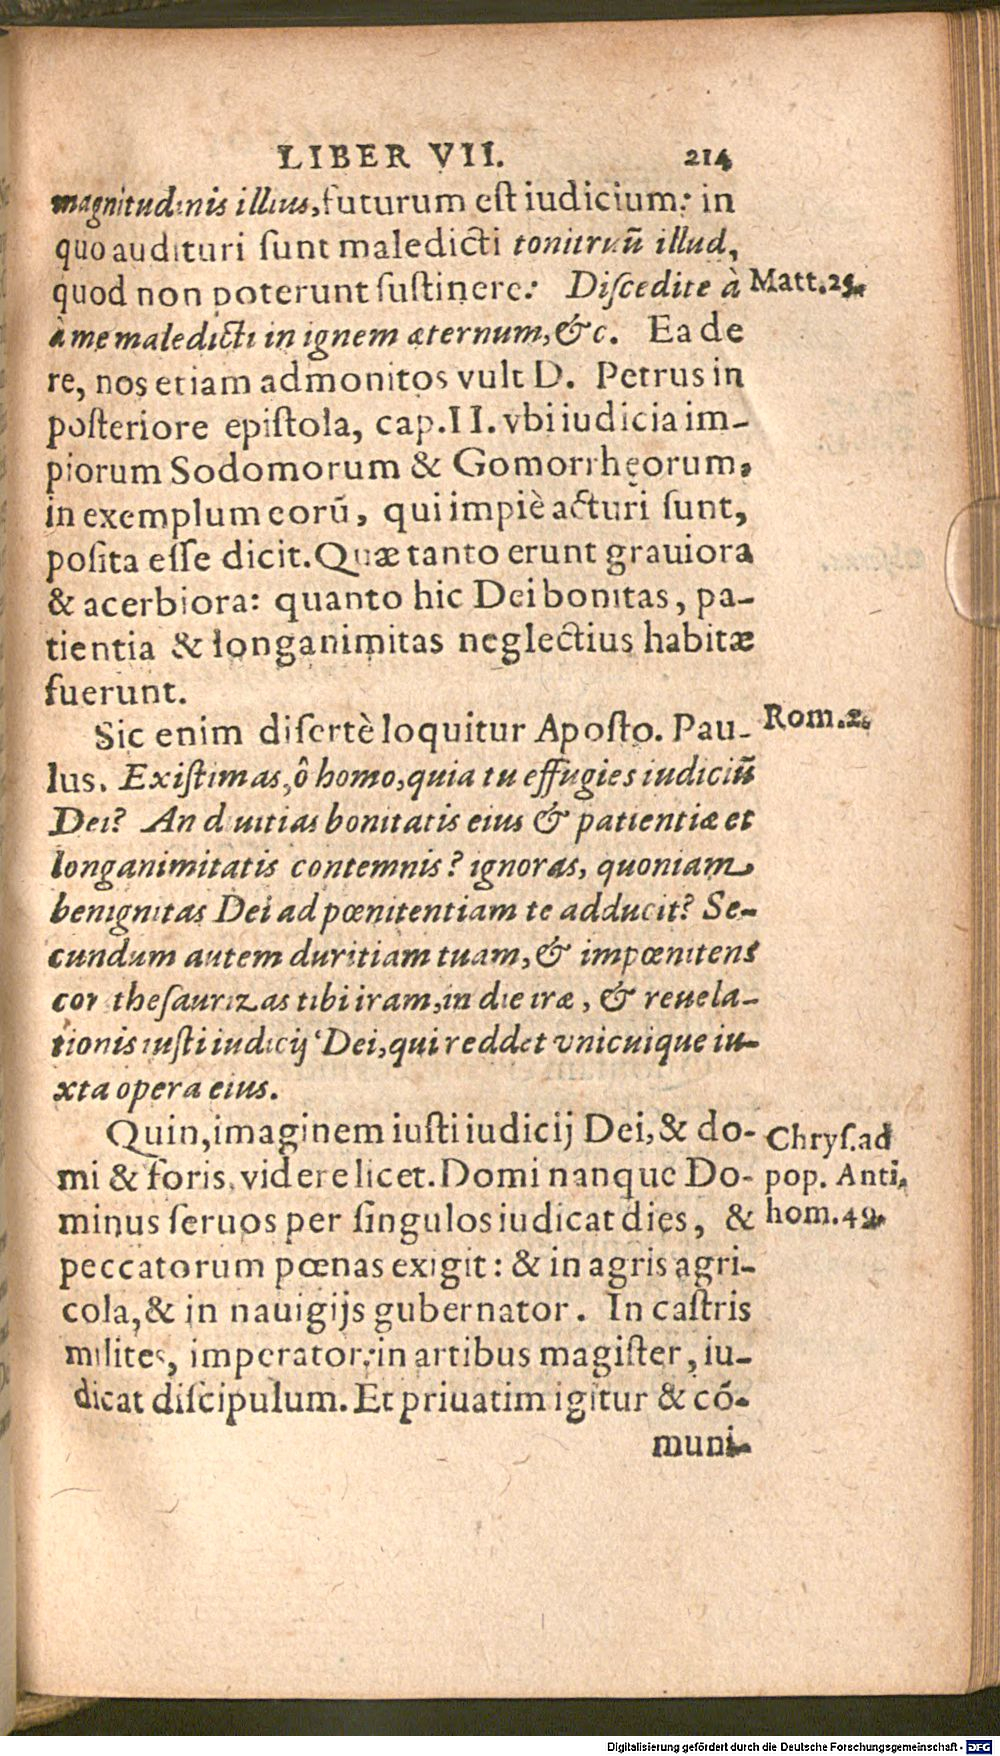 LIBER VII. 214
magnitudinis illius, futurum est iudicium: in
quo audituri sunt maledicti tonitruũ illud,
quod non poterunt sustinere: Discedite à
à me maledicti in ignem æternum, &c. Ea de
Matt.25.
re, nos etiam admonitos vult D. Petrus in
posteriore epistola, cap.II. vbi iudicia im-
piorum Sodomorum & Gomorrhęorum,
in exemplum eorũ, qui impiè acturi sunt,
posita esse dicit. Quæ tanto erunt grauiora
& acerbiora: quanto hic Dei bonitas, pa-
tientia & longanimitas neglectius habitæ
fuerunt.
Sic enim disertè loquitur Aposto. Pau-
Rom.2.
lus. Existimas, ô homo, quia tu effugies iudiciũ
Dei? An diuitias bonitatis eius & patientiæ et
longanimitatis contemnis? ignoras, quoniam
benignitas Dei ad pœnitentiam te adducit? Se-
cundum autem duritiam tuam, & impœnitens
cor thesaurizas tibi iram, in die iræ, & reuela-
tionis iusti iudicij Dei, qui reddet vnicuique iu-
xta opera eius.
Quin, imaginem iusti iudicij Dei, & do-
mi & foris videre licet. Domi nanque Do-
minus seruos per singulos iudicat dies, &
Chrys. ad
pop. Anti.
hom.49.
peccatorum pœnas exigit: & in agris agri-
cola, & in nauigijs gubernator. In castris
milites, imperator: in artibus magister, iu-
dicat discipulum. Et priuatim igitur & cõ-
muni-
Digitalisierung gefördert durch die Deutsche Forschungsgemeinschaft - DFG